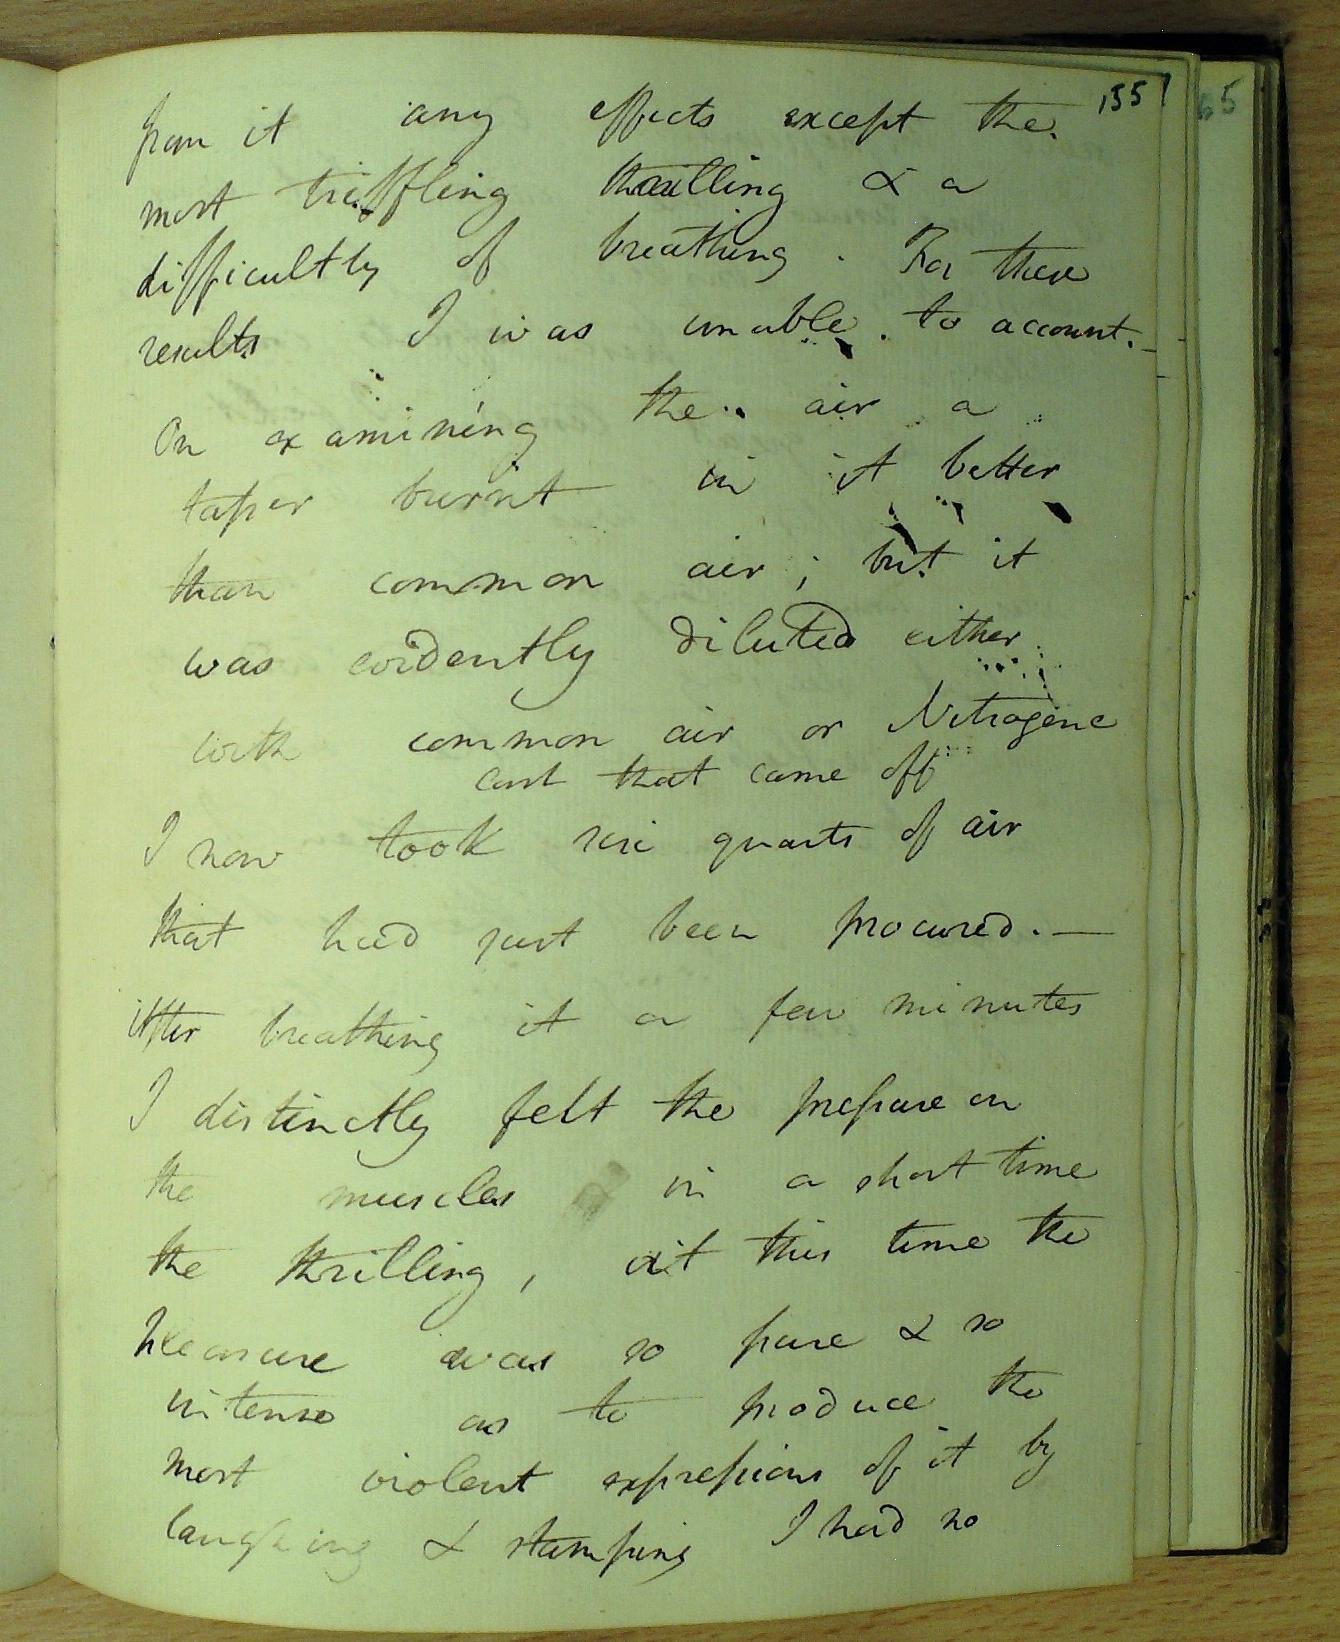 155
from it any effects except the
most triffling thrilling & a
difficultly of breathing. For these
results I was unable to account.
On examining the air a
taper burnt in it better
than common air; but it
was evidently diluted either
with common air or Nitrogene
last that came off
I now took six quarts of air
that had just been procured. —
After breathing it a few minutes
I distinctly felt the presure on
the muscles in a short time
the thrilling, at this time the
pleasure was so pure & so
intense as to produce the
most violent expressions of it by
laughing & stamping I had no